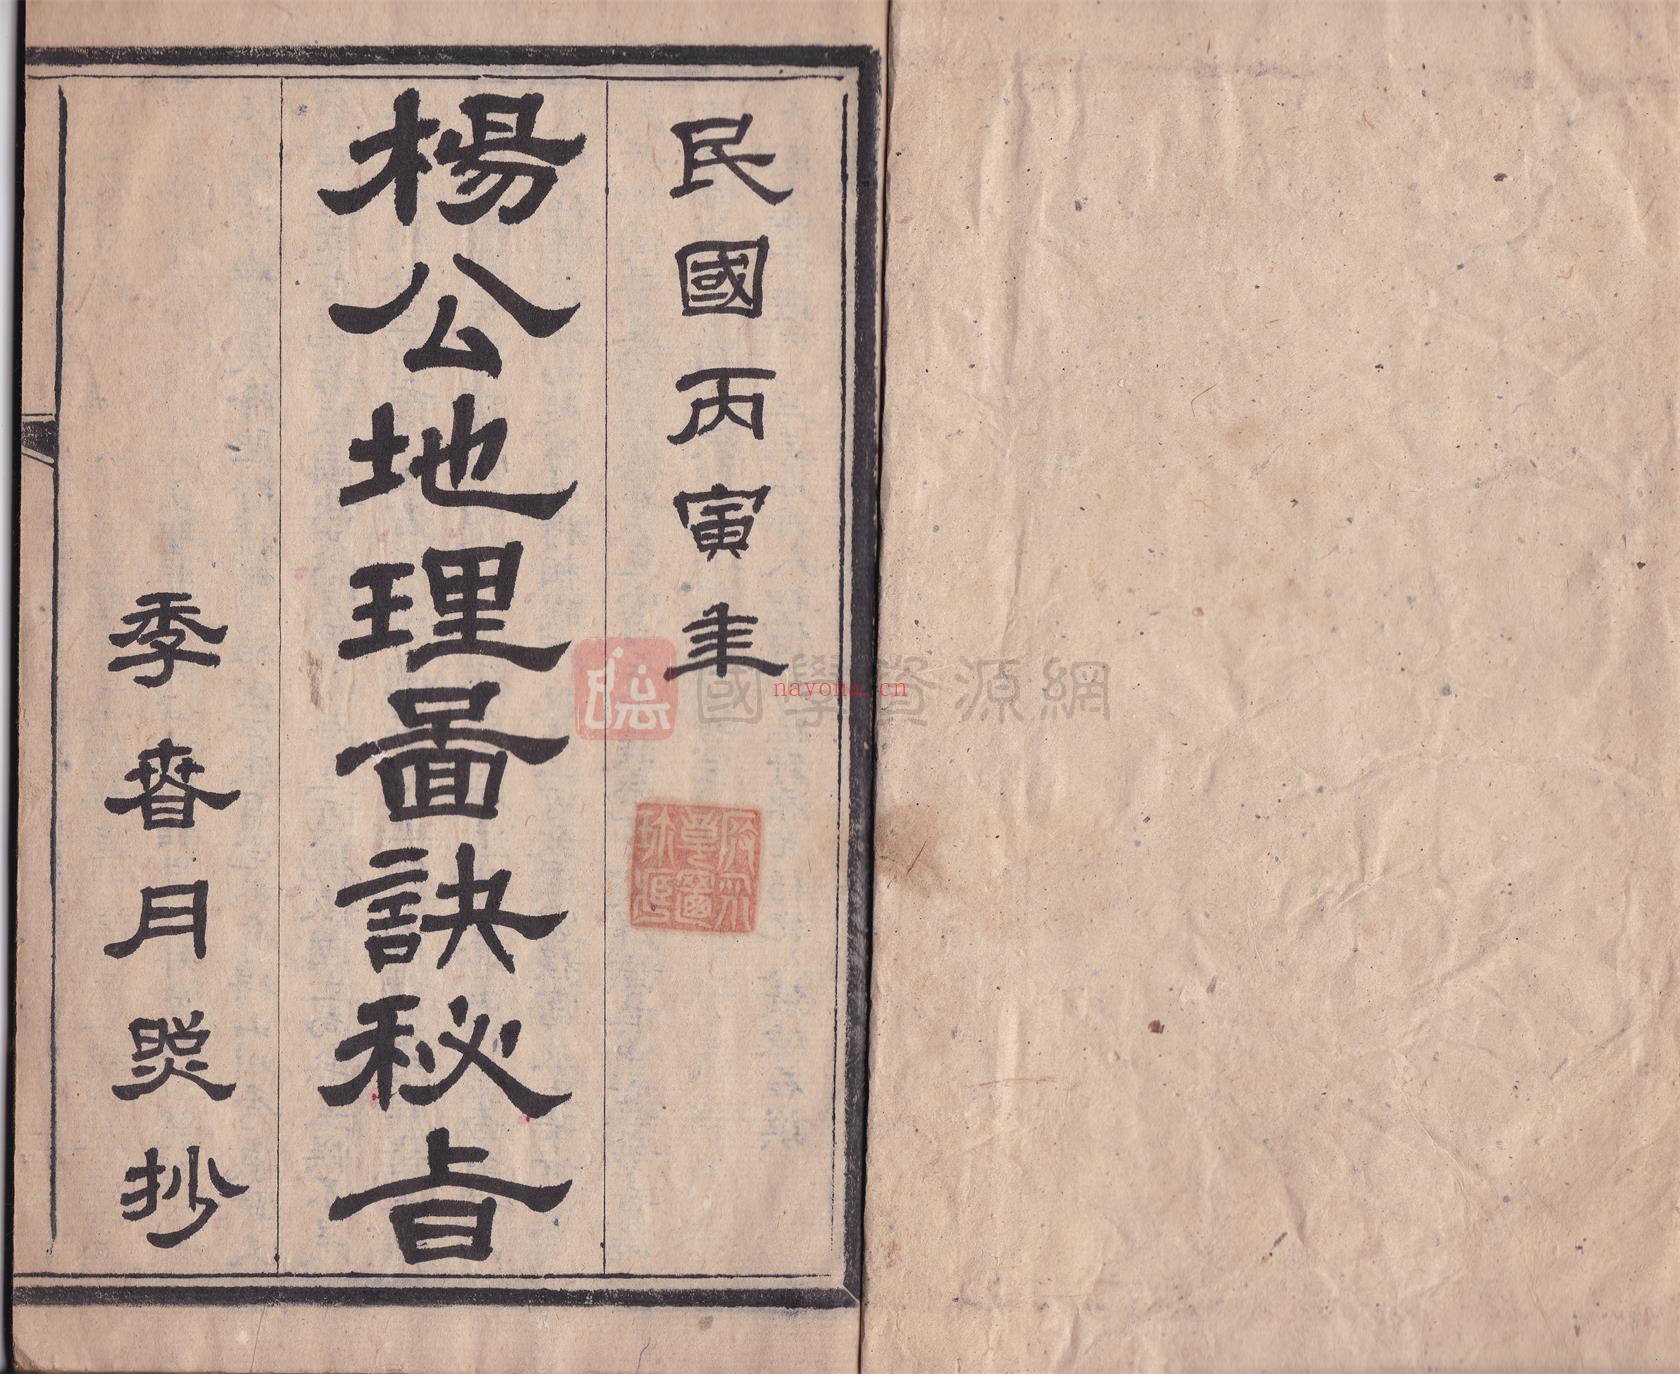 民國丙寅年
楊公地理圖訣秘旨
季春月照抄
國學資源網
nayona.cn